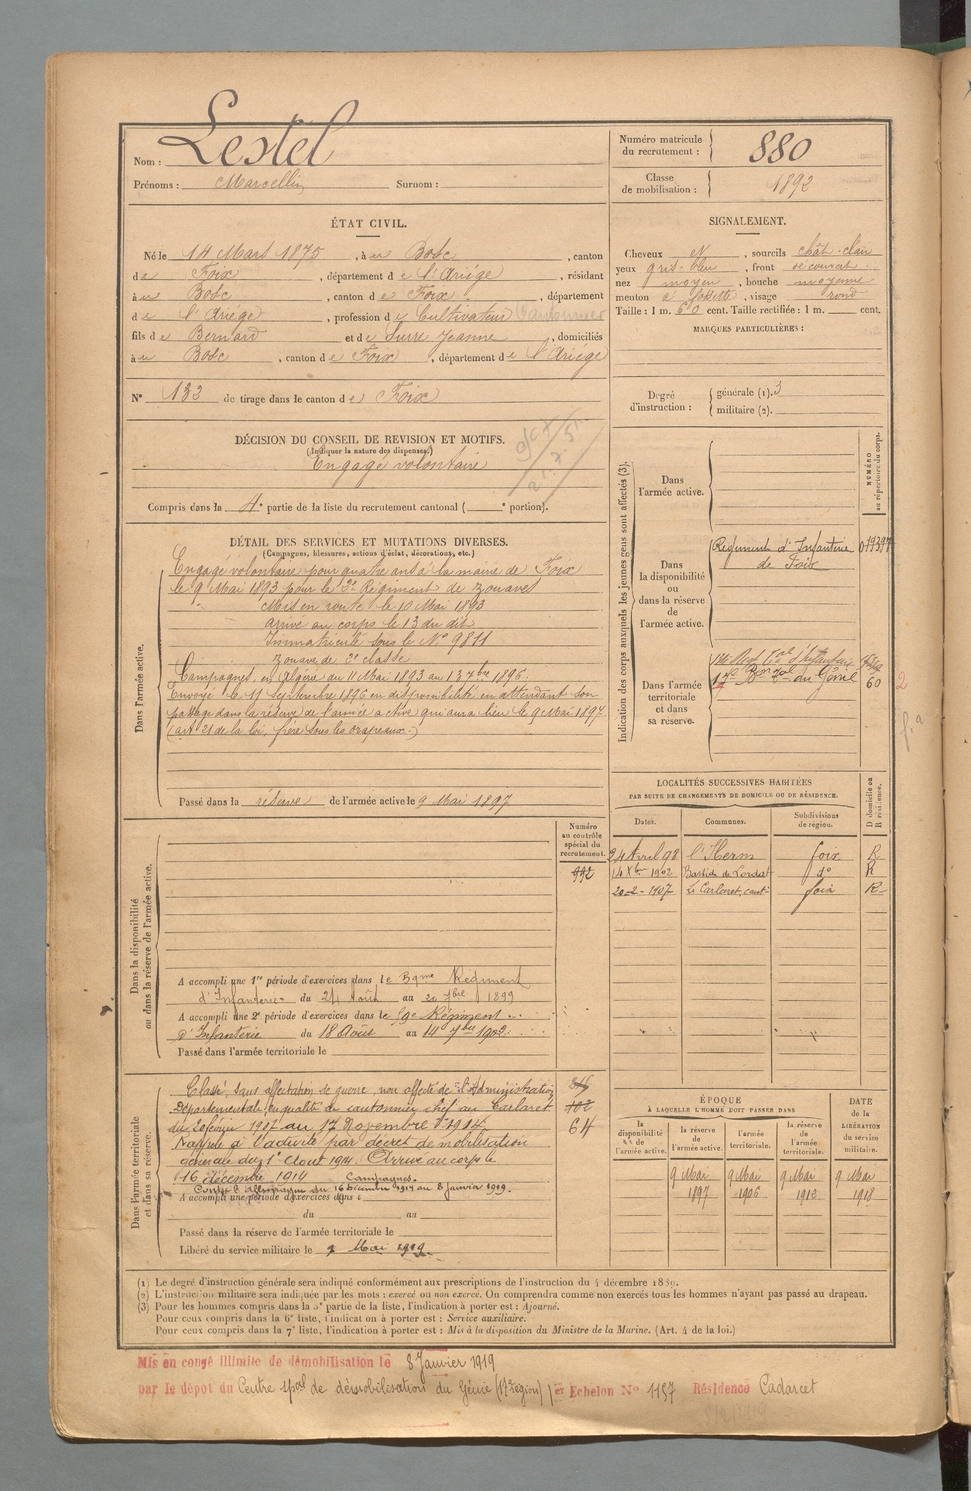 Nom : Lestel
Prénoms : Marcellin Surnom :
ÉTAT CIVIL.
Né le 14 Mars 1875, à u Bosc, canton
de Foix, département de l'Ariège, résidant
à u Bosc, canton de Foix, département
de l'Ariège, profession de Cultivateur Cantonnier
fils de Bernard et de Surre Jeanne, domiciliés
à u Bosc, canton de Foix, département de l'Ariège
N° 133 de tirage dans le canton de Foix
DÉCISION DU CONSEIL DE REVISION ET MOTIFS.
(Indiquer la nature des dispenses.)
Engagé volontaire
Compris dans la 4e partie de la liste du recrutement cantonal ( e portion).
DÉTAIL DES SERVICES ET MUTATIONS DIVERSES.
(Campagnes, blessures, actions d'éclat, décorations, etc.)
Dans l'armée active.
Engagé volontaire pour quatre ans à la mairie de Foix
le 9 Mai 1893 pour le Régiment de Zouaves
Mis en route le 10 Mai 1893
arrivé au corps le 13 du dit
Immatriculé sous le N° 9811
Zouave de 2e classe
Campagnes, en Algérie du 11 Mai 1893 au 13 7bre 1896.
Envoyé le 11 Septembre 1896 en disponibilité en attendant son
passage dans la réserve de l'armée active qui aura lieu le 9 Mai 1897
(art 21 de la loi, frère sous les drapeaux.)
Passé dans la réserve de l'armée active le 9 Mai 1897
Numéro au contrôle spécial du recrutement.
992
Dans la disponibilité ou dans la réserve de l'armée active.
A accompli une 1re période d'exercices dans le 59eme Régiment
d'Infanterie du 24 Août au 20 7bre 1899
A accompli une 2e période d'exercices dans le Régiment
d'Infanterie du 18 Août au 14 7bre 1902.
Passé dans l'armée territoriale le
Dans l'armée territoriale et dans sa réserve.
Classé, sans affectation de guerre, non affecté de l'Administration
Départementale, en qualité de cantonnier chef au Carlaret
du 20 février 1907 au 17 Novembre 1914
Rappelé à l'activité par décret de mobilisation
générale du 1er Août 1914. Arrivé au corps le
16 décembre 1914 Campagnes.
Contre l'Allemagne du 16 Décembre 1914 au 8 janvier 1919.
A accompli une période d'exercices dans l
du au
64
Passé dans la réserve de l'armée territoriale le
Libéré du service militaire le 9 Mai 1919.
Numéro matricule du recrutement : 880
Classe de mobilisation : 1892
SIGNALEMENT.
Cheveux N, sourcils chât-clair
yeux gris-bleu, front découvert
nez moyen, bouche moyenne
menton à fossette, visage rond
Taille : 1 m. 60 cent. Taille rectifiée : 1 m. cent.
MARQUES PARTICULIÈRES :
Degré d'instruction : générale (1). 3
militaire (2).
Indication des corps auxquels les jeunes gens sont affectés (3).
NUMÉRO au répertoire du corps.
Dans l'armée active.
Dans la disponibilité ou dans la réserve de l'armée active.
Régiment d'Infanterie
de Foix
Dans l'armée territoriale et dans sa réserve.
du Génie 60
2
LOCALITÉS SUCCESSIVES HABITÉES
PAR SUITE DE CHANGEMENTS DE DOMICILE OU DE RÉSIDENCE.
D domicile ou R résidence.
Dates. Communes. Subdivisions de région.
24 Avril 98 l'Herm foix R
14 Xbre 1902 Bastide de Lordat do R
20-2-1907 Le Carlaret, cant. foix R
ÉPOQUE
À LAQUELLE L'HOMME DOIT PASSER DANS
DATE de la LIBÉRATION du service militaire.
la disponibilité de l'armée active.
la réserve de l'armée active.
l'armée territoriale.
la réserve de l'armée territoriale.
9 Mai 1897
9 Mai 1906
9 Mai 1912
9 Mai 1918
(1) Le degré d'instruction générale sera indiqué conformément aux prescriptions de l'instruction du 4 décembre 1889.
(2) L'instruction militaire sera indiquée par les mots : exercé ou non exercé. On comprendra comme non exercés tous les hommes n'ayant pas passé au drapeau.
(3) Pour les hommes compris dans la 5e partie de la liste, l'indication à porter est : Ajourné.
Pour ceux compris dans la 6e liste, l'indication à porter est : Service auxiliaire.
Pour ceux compris dans la 7e liste, l'indication à porter est : Mis à la disposition du Ministre de la Marine. (Art. 4 de la loi.)
Mis en congé illimité de démobilisation le 8 Janvier 1919
par le dépôt du Centre spal de démobilisation du Génie (17e région) 1er Echelon N° 1157 Résidence Cadarcet